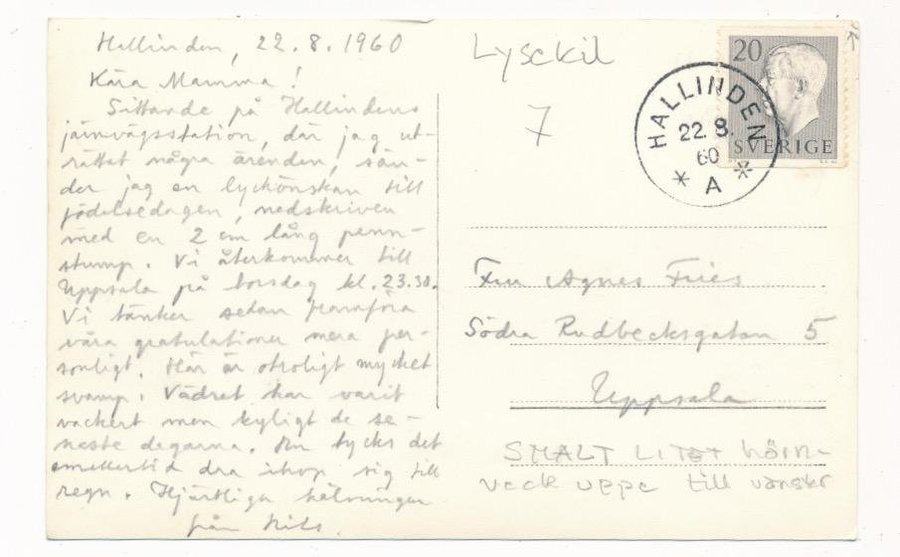 Hallinden, 22.8.1960
Kära Mamma!
Sittande på Hallindens
järnvägsstation, där jag ut-
rättat några ärenden, sän-
der jag en lyckönskan till
födelsedagen, nedskriven
med en 2 cm lång penn-
stump. Vi återkommer till
Uppsala på torsdag kl. 23.30.
Vi tänker sedan framföra
våra gratulationer mera per-
sonligt. Här är otroligt mycket
svamp. Vädret har varit
vackert men kyligt de se-
naste dagarna. Nu tycks det
emellertid dra ihop sig till
regn. Hjärtliga hälsningar
från Nils.
Lysekil
7
20
SVERIGE
HALLINDEN
22.8.
60
* A *
Fru Agnes Fries
Södra Rudbecksgatan 5
Uppsala
SMALT LITET hörn-
veck uppe till vänster